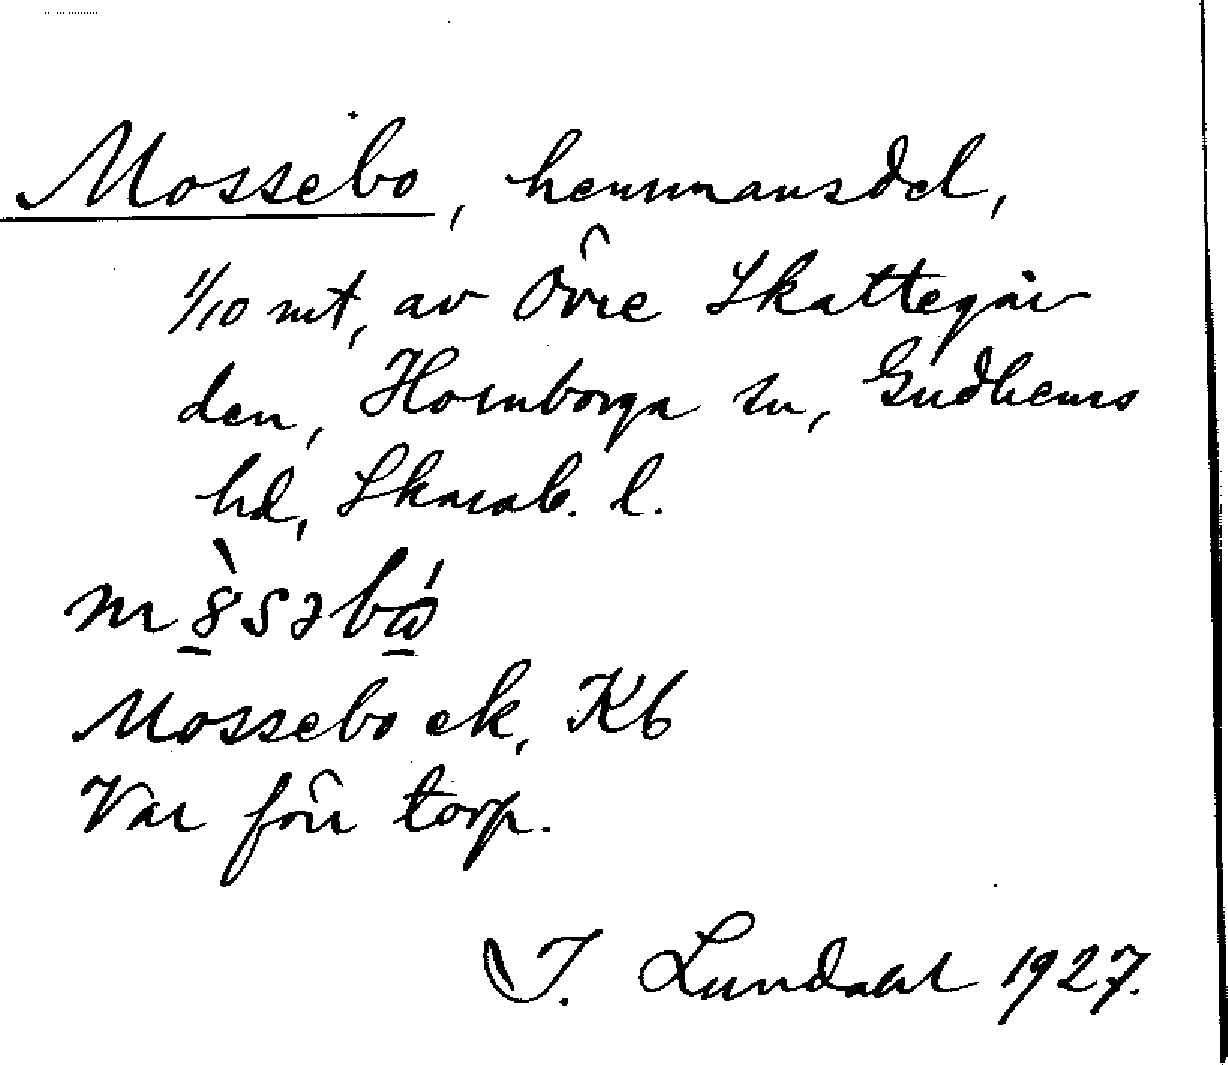 Mossebo, hemmansdel,
1/10 mt, av Övre Skattegår
den, Hornborga sn, Gudhems
hd, Skarab. l.
Mossebo ek, Kb
Var förr torp.
I. Lundahl 1927.